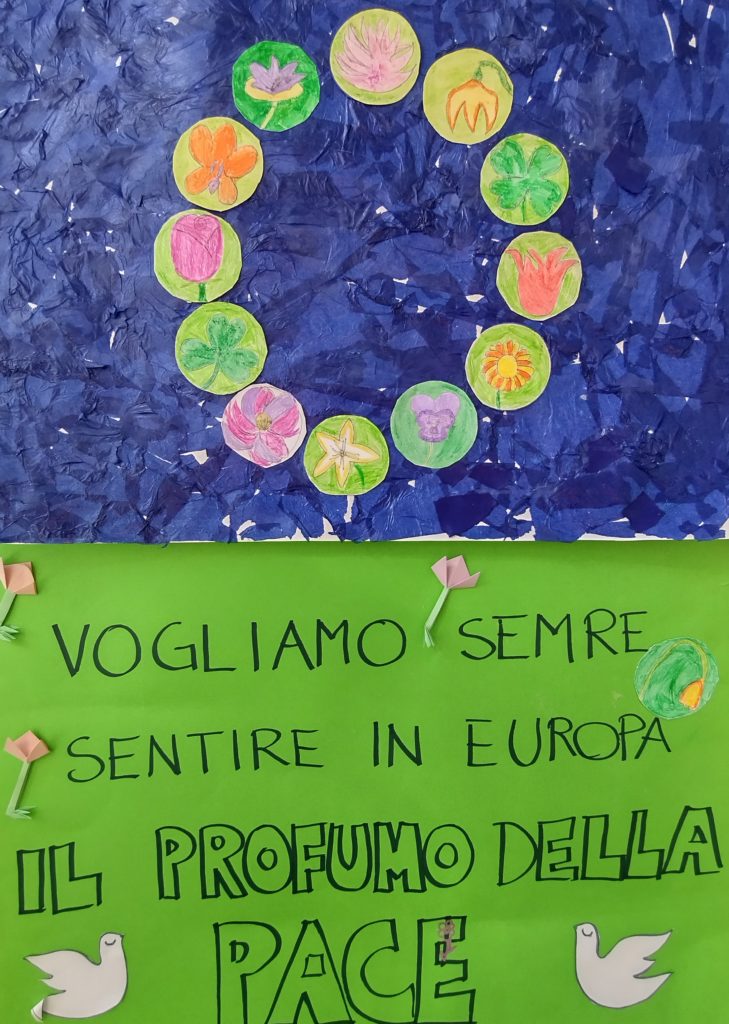 VOGLIAMO SEMRE
SENTIRE IN EUROPA
IL PROFUMO DELLA
PACE